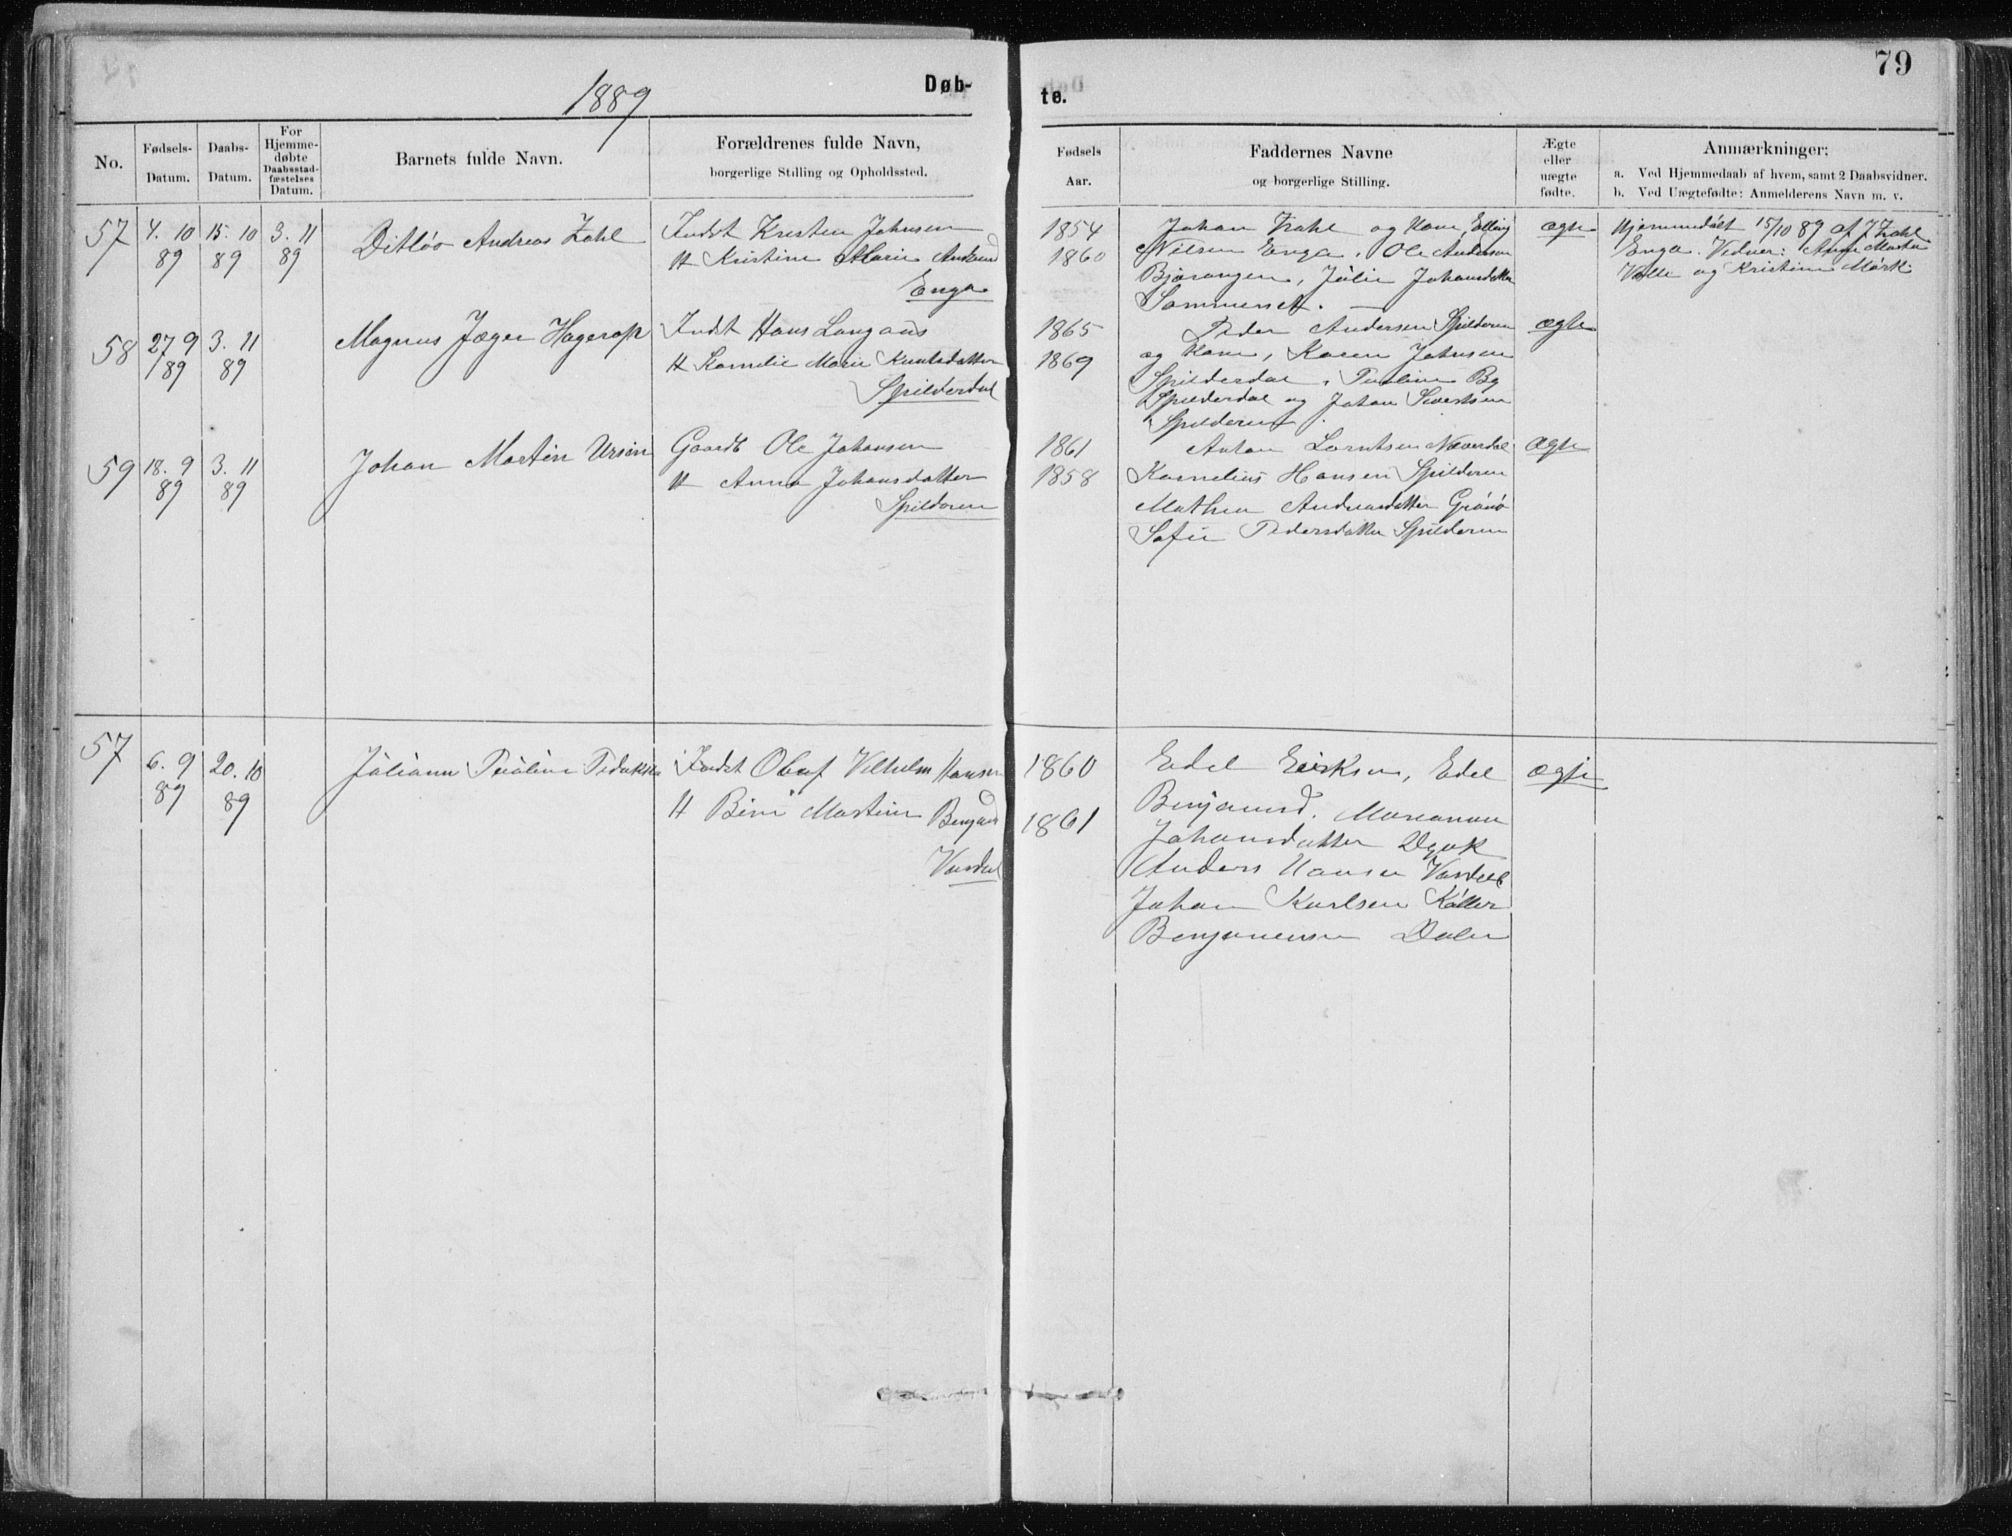 79
1889
Døb-
te.
No.
Fødsels-
Datum.
Daabs-
Datum.
For
Hjemme-
døbte
Daabsstad-
fæstelses
Datum.
Barnets fulde Navn.
Forældrenes fulde Navn,
borgerlige Stilling og Opholdssted.
Fødsels
Aar.
Faddernes Navne
og borgerlige Stilling.
Ægte
eller
uægte
fødte.
Anmærkninger:
a. Ved Hjemmedaab af hvem, samt 2 Daabsvidner.
b. Ved Uægtefødte: Anmelderens Navn m. v.
57
4. 10
89
15. 10
89
3. 11
89
Ditløv Andreas Zahl
Indst Kristen Johnsen
H Kristine Marie
Enga
1854
1860
Johan Zahl og Kone, Elling
Nilsen Enga, Ole Andersen
Bjærangen, Julie Johansdatter
Sommerset.
ægte
Hjemmedøbt 15/10 89 af J Zahl
Enga. Vidner: Anne Marta
Valle og Kristine Mørk
58
27 9
89
3. 11
89
Magnus Jæger Hagerop
Indst Hans Langaas
H Kornelie Marie Knutsdatter
Spilderdal
1865
1869
Peder Andersen Spilderen
og Kone, Karen Johnsen
Spilderdal, By
Spilderdal og Johan Sivertsen
Spilderen.
ægte
59
18. 9
89
3. 11
89
Johan Martin Ursin
Gaardb Ole Johansen
H Anna Johansdatter
Spilderen
1861
1858
Anton Larntsen Neverdal
Kornelius Hansen Spilderen
Mathea Andreasdatter Grønø
Sofie Pedersdatter Spilderen
ægte
57
6. 9
89
20. 10
89
Juliane
Indst Olaf Vilhelm Hansen
H Martine
Vasdal
1860
1861
Edel Eriksen, Edel
Benjamsd. Marianne
Johansdatter
Anders Hansen Vasdal
Johan Karlsen
Benjaminsen
ægte